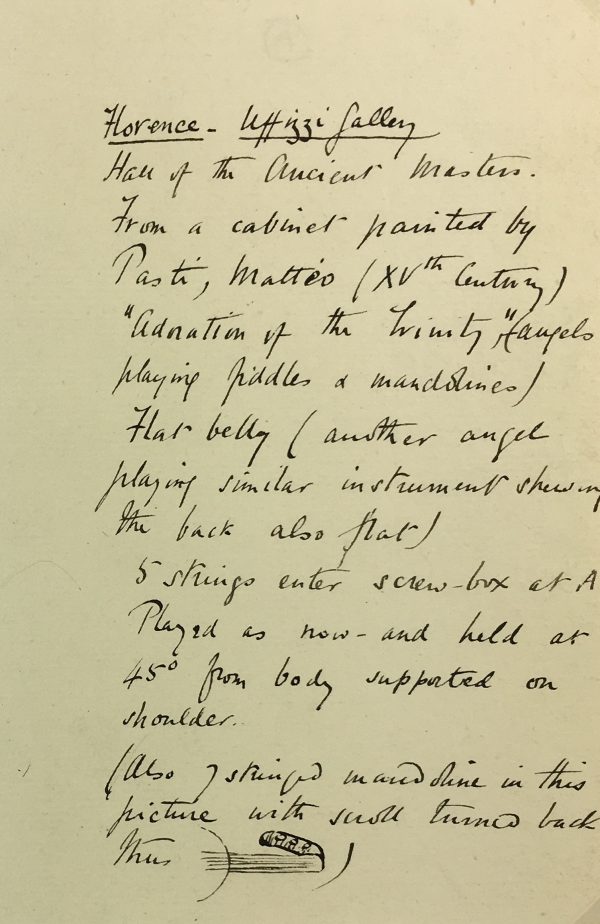 Florence - Uffizzi Gallery
Hall of the Ancient Masters.
From a cabinet painted by
Pasti, Mattéo (XVth Century)
"Adoration of the Trinity", (angels
playing fiddles & mandolines)
Flat belly (another angel
playing similar instrument shewing
the back also flat)
5 strings enter screw-box at A
Played as now - and held at
45° from body supported on
shoulder.
(Also 7 stringed mandoline in this
picture with scroll turned back
thus )